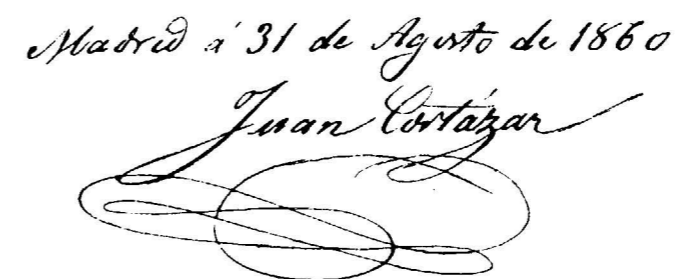 Madrid á 31 de Agosto de 1860
Juan Cortázar